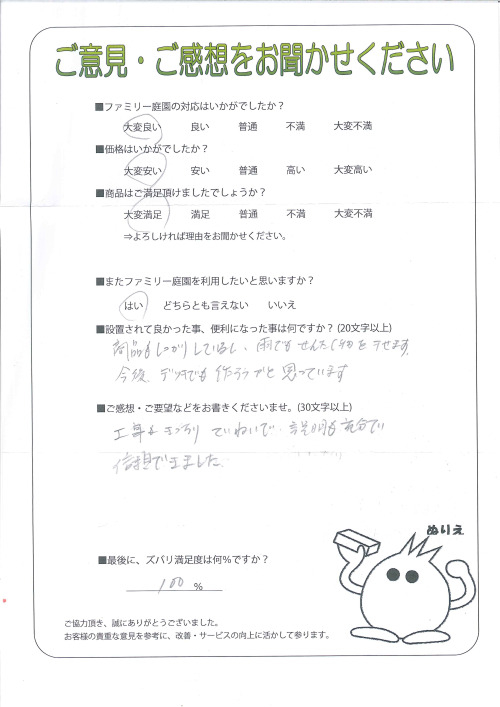 ご意見・ご感想をお聞かせください
■ファミリー庭園の対応はいかがでしたか？
大変良い 良い 普通 不満 大変不満
■価格はいかがでしたか？
大変安い 安い 普通 高い 大変高い
■商品はご満足頂けましたでしょうか？
大変満足 満足 普通 不満 大変不満
⇒よろしければ理由をお聞かせください。
■またファミリー庭園を利用したいと思いますか？
はい どちらとも言えない いいえ
■設置されて良かった事、便利になった事は何ですか？(20文字以上)
商品もしっかりしているし、雨でもせんたく物を干せます。
今後、デッキでも作ろうかと思っています
■ご感想・ご要望などをお書きくださいませ。(30文字以上)
工事もきっちりていねいで、説明も充分で
信頼できました。
ぬりえ
■最後に、ズバリ満足度は何％ですか？
100 %
ご協力頂き、誠にありがとうございました。
お客様の貴重な意見を参考に、改善・サービスの向上に活かして参ります。